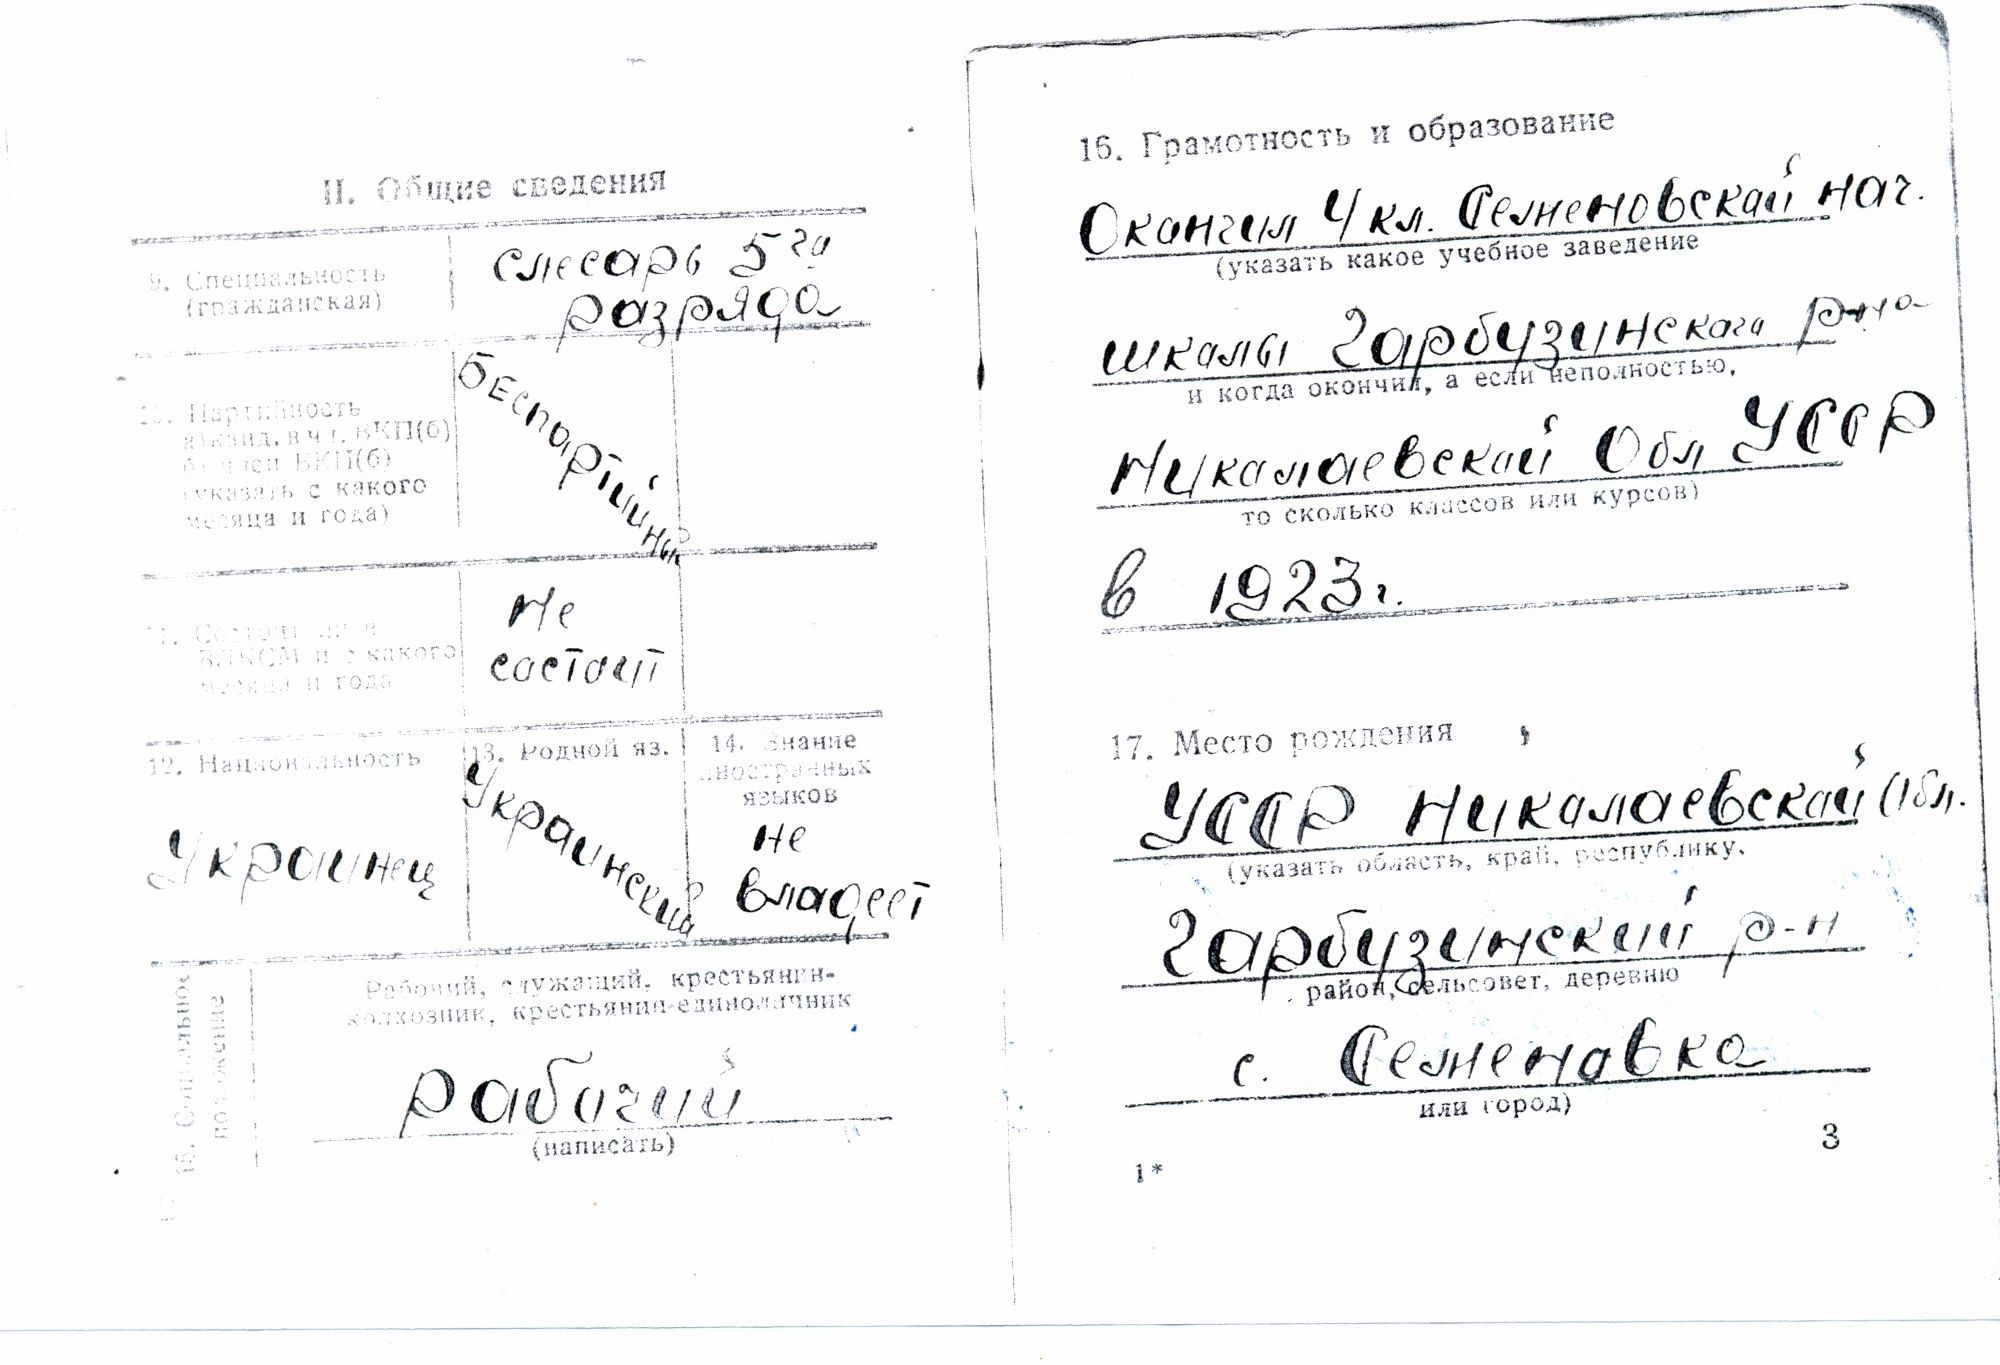 II. Общие сведения
9. Специальность
(гражданская)
слесарь 5га
разряда
10. Партийность
а) канд. в чл. ВКП(б)
б) член ВКП(б)
(указать с какого
месяца и года)
беспартийный
11. Состоит ли в
ВЛКСМ и с какого
месяца и года
не
састоит
12. Национальность
Украинец
13. Родной яз.
Украинский
14. Знание
иностранных
языков
не
владеет
15. Социальное
положение
Рабочий, служащий, крестьянин-
колхозник, крестьянин-единоличник
рабочий
(написать)
16. Грамотность и образование
Окангил 4 кл. Семеновскай нач.
(указать какое учебное заведение
шкалы Гарбузинскага р-на
и когда окончил, а если неполностью,
Никалаевскай Обл УССР
то сколько классов или курсов)
в 1923г.
17. Место рождения
УССР Никалаевскай Обл.
(указать область, край, республику,
Гарбузинский р-н
район, сельсовет, деревню
с. Семенавка
или город)
3
1*